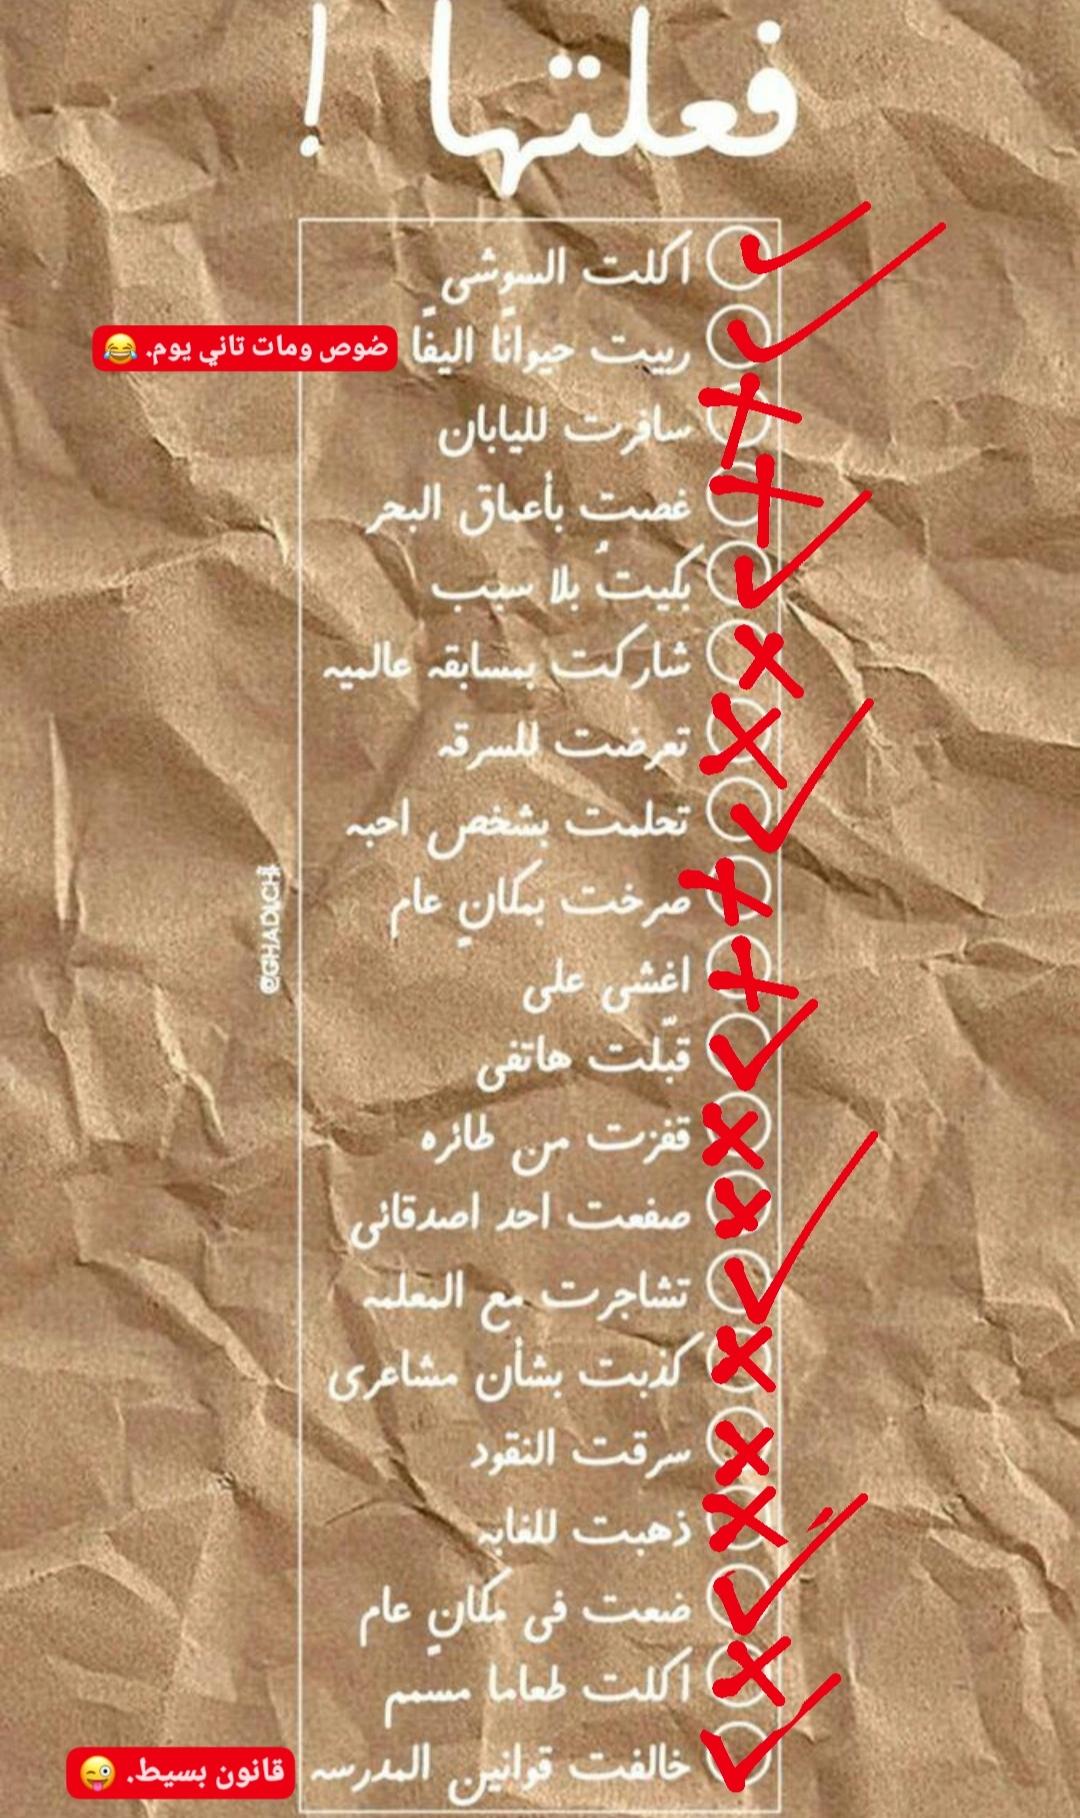 فعلتها !
اكلت السوشي
ربيت حيوانًا اليفًا
صُوص ومات تاني يوم. 😂
سافرت لليابان
غصت بأعماق البحر
بكيتُ بلا سبب
شاركت بمسابقه عالميه
تعرضت للسرقه
تحلمت بشخصٍ احبه
صرخت بمكانٍ عام
اغشي علي
قبّلت هاتفي
قفزت من طائره
صفعت احد اصدقائي
تشاجرت مع المعلمه
كذبت بشأن مشاعري
سرقت النقود
ذهبت للغابه
ضعت في مكانٍ عام
اكلت طعاما مسمم
خالفت قوانين المدرسه
قانون بسيط. 😜